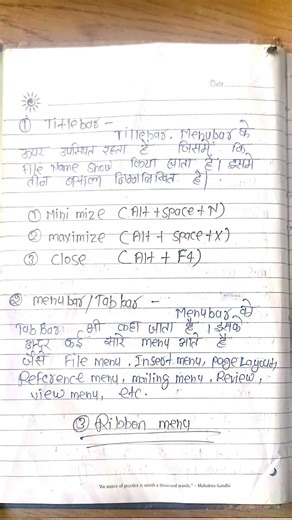 Date
① Titlebar -
Titlebar. Menubar के
ऊपर उपस्थित रहता है जिसमें कि
File Name Show किया जाता है। इसमें
तीन बटन निम्नलिखित है।
① Mini mize (Alt + space + N)
② maximize (Alt + space + X)
③ close (Alt + F4)
② menubar/Tab bar -
Menubar को
Tab Bar भी कहा जाता है। इसके
अन्दर कई सारे menu आते हैं
जैसे File menu, Insert menu, page Layout,
Reference menu, mailing menu, Review,
view menu, etc.
③ Ribbon menu
"An ounce of practice is worth a thousand words." - Mahatma Gandhi